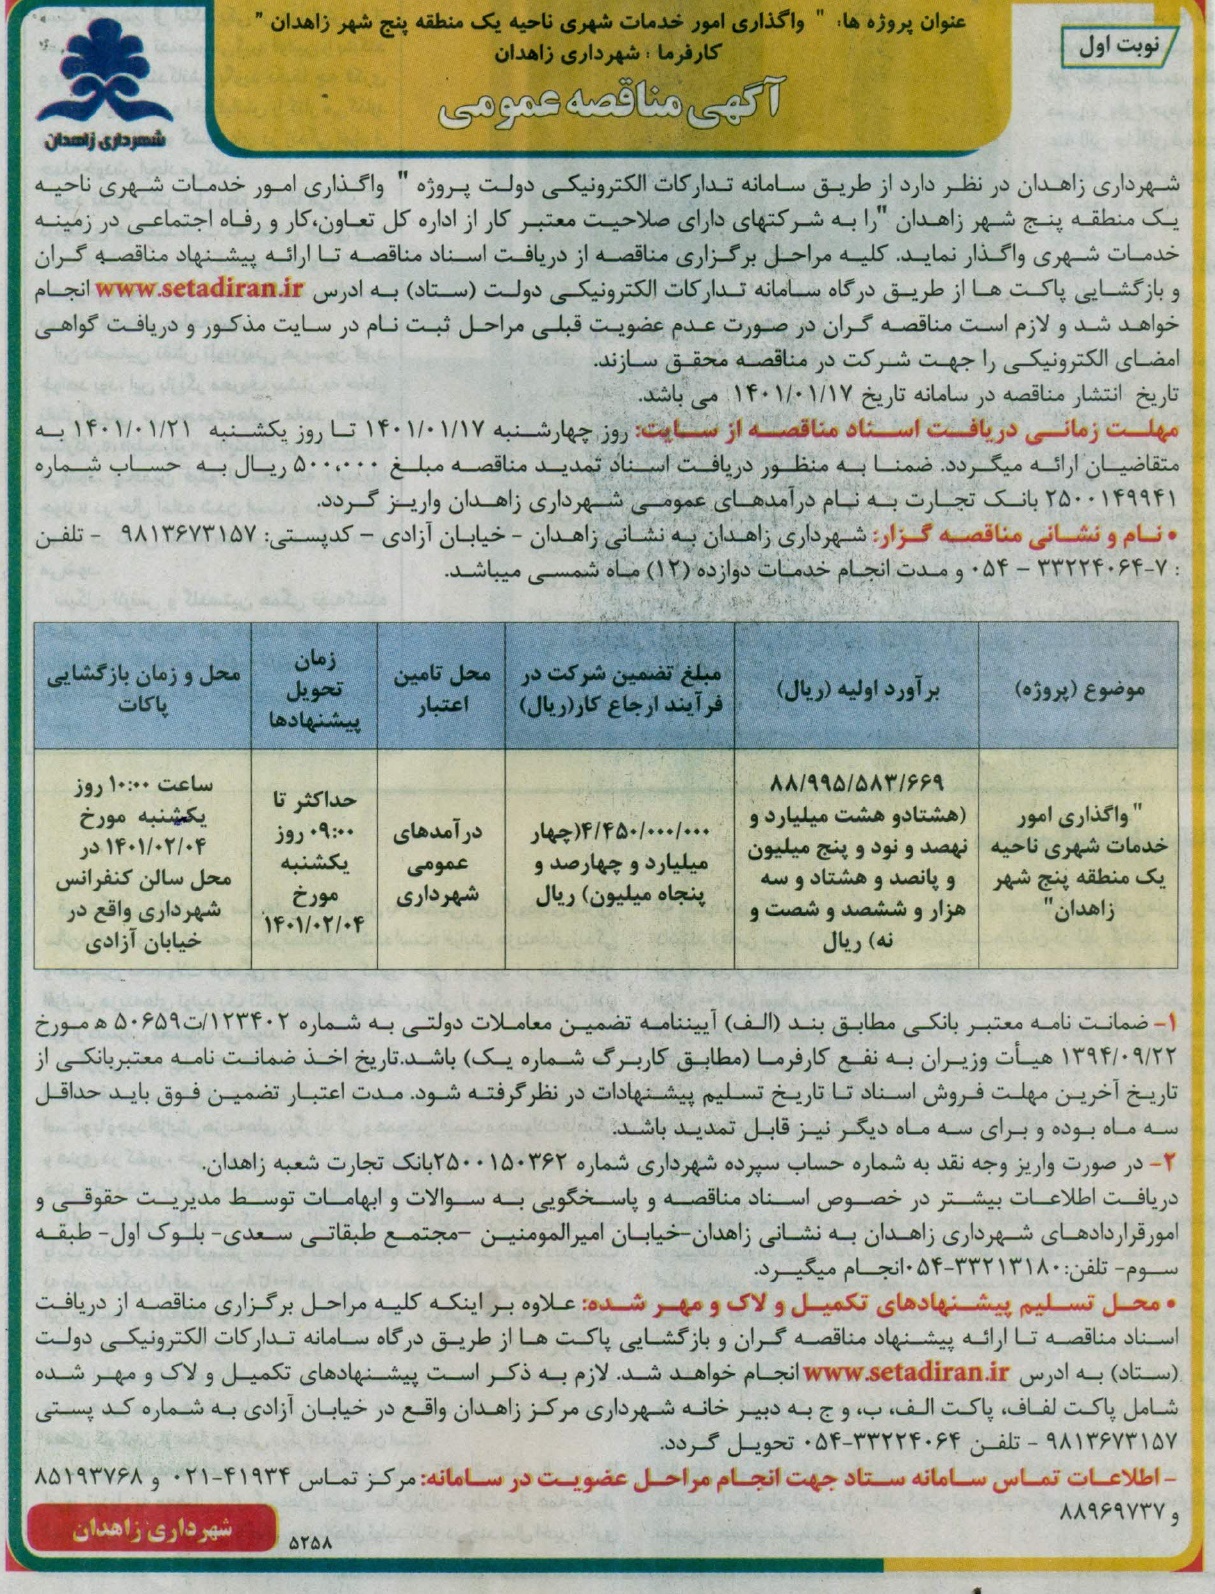 نوبت اول
عنوان پروژه ها: " واگذاری امور خدمات شهری ناحیه یک منطقه پنج شهر زاهدان "
کارفرما : شهرداری زاهدان
آگهی مناقصه عمومی
شهرداری زاهدان
شهرداری زاهدان در نظر دارد از طریق سامانه تدارکات الکترونیکی دولت پروژه " واگذاری امور خدمات شهری ناحیه
یک منطقه پنج شهر زاهدان "را به شرکتهای دارای صلاحیت معتبر کار از اداره کل تعاون،کار و رفاه اجتماعی در زمینه
خدمات شهری واگذار نماید. کلیه مراحل برگزاری مناقصه از دریافت اسناد مناقصه تا ارائه پیشنهاد مناقصه گران
و بازگشایی پاکت ها از طریق درگاه سامانه تدارکات الکترونیکی دولت (ستاد) به ادرس www.setadiran.ir انجام
خواهد شد و لازم است مناقصه گران در صورت عدم عضویت قبلی مراحل ثبت نام در سایت مذکور و دریافت گواهی
امضای الکترونیکی را جهت شرکت در مناقصه محقق سازند.
تاریخ انتشار مناقصه در سامانه تاریخ ۱۴۰۱/۰۱/۱۷ می باشد.
مهلت زمانی دریافت اسناد مناقصه از سایت: روز چهارشنبه ۱۴۰۱/۰۱/۱۷ تا روز یکشنبه ۱۴۰۱/۰۱/۲۱ به
متقاضیان ارائه میگردد. ضمنا به منظور دریافت اسناد تمدید مناقصه مبلغ ۵۰۰,۰۰۰ ریال به حساب شماره
۲۵۰۰۱۴۹۹۴۱ بانک تجارت به نام درآمدهای عمومی شهرداری زاهدان واریز گردد.
• نام و نشانی مناقصه گزار: شهرداری زاهدان به نشانی زاهدان - خیابان آزادی – کدپستی: ۹۸۱۳۶۷۳۱۵۷ - تلفن
: ۷-۳۳۲۲۴۰۶۴ – ۰۵۴ و مدت انجام خدمات دوازده (۱۲) ماه شمسی میباشد.
موضوع (پروژه)
برآورد اولیه (ریال)
مبلغ تضمین شرکت در
فرآیند ارجاع کار(ریال)
محل تامین
اعتبار
زمان
تحویل
پیشنهادها
محل و زمان بازگشایی
پاکات
" واگذاری امور
خدمات شهری ناحیه
یک منطقه پنج شهر
زاهدان"
۸۸/۹۹۵/۵۸۳/۶۶۹
(هشتادو هشت میلیارد و
نهصد و نود و پنج میلیون
و پانصد و هشتاد و سه
هزار و ششصد و شصت و
نه) ریال
۴/۴۵۰/۰۰۰/۰۰۰(چهار
میلیارد و چهارصد و
پنجاه میلیون) ریال
درآمدهای
عمومی
شهرداری
حداکثر تا
۰۹:۰۰ روز
یکشنبه
مورخ
۱۴۰۱/۰۲/۰۴
ساعت ۱۰:۰۰ روز
یکشنبه مورخ
۱۴۰۱/۰۲/۰۴ در
محل سالن کنفرانس
شهرداری واقع در
خیابان آزادی
۱- ضمانت نامه معتبر بانکی مطابق بند (الف) آییننامه تضمین معاملات دولتی به شماره ۱۲۳۴۰۲/ت۵۰۶۵۹ ه مورخ
۱۳۹۴/۰۹/۲۲ هیأت وزیران به نفع کارفرما (مطابق کاربرگ شماره یک) باشد.تاریخ اخذ ضمانت نامه معتبربانکی از
تاریخ آخرین مهلت فروش اسناد تا تاریخ تسلیم پیشنهادات در نظرگرفته شود. مدت اعتبار تضمین فوق باید حداقل
سه ماه بوده و برای سه ماه دیگر نیز قابل تمدید باشد.
۲- در صورت واریز وجه نقد به شماره حساب سپرده شهرداری شماره ۲۵۰۰۱۵۰۳۶۲بانک تجارت شعبه زاهدان.
دریافت اطلاعات بیشتر در خصوص اسناد مناقصه و پاسخگویی به سوالات و ابهامات توسط مدیریت حقوقی و
امورقراردادهای شهرداری زاهدان به نشانی زاهدان-خیابان امیرالمومنین -مجتمع طبقاتی سعدی- بلوک اول- طبقه
سوم- تلفن:۳۳۲۱۳۱۸۰-۰۵۴انجام میگیرد.
• محل تسلیم پیشنهادهای تکمیل و لاک و مهر شده: علاوه بر اینکه کلیه مراحل برگزاری مناقصه از دریافت
اسناد مناقصه تا ارائه پیشنهاد مناقصه گران و بازگشایی پاکت ها از طریق درگاه سامانه تدارکات الکترونیکی دولت
(ستاد) به ادرس www.setadiran.ir انجام خواهد شد. لازم به ذکر است پیشنهادهای تکمیل و لاک و مهر شده
شامل پاکت لفاف، پاکت الف، ب، و ج به دبیر خانه شهرداری مرکز زاهدان واقع در خیابان آزادی به شماره کد پستی
۹۸۱۳۶۷۳۱۵۷ - تلفن ۳۳۲۲۴۰۶۴-۰۵۴ تحویل گردد.
- اطلاعات تماس سامانه ستاد جهت انجام مراحل عضویت در سامانه: مرکز تماس ۴۱۹۳۴-۰۲۱ و ۸۵۱۹۳۷۶۸
و ۸۸۹۶۹۷۳۷
شهرداری زاهدان
۵۲۵۸